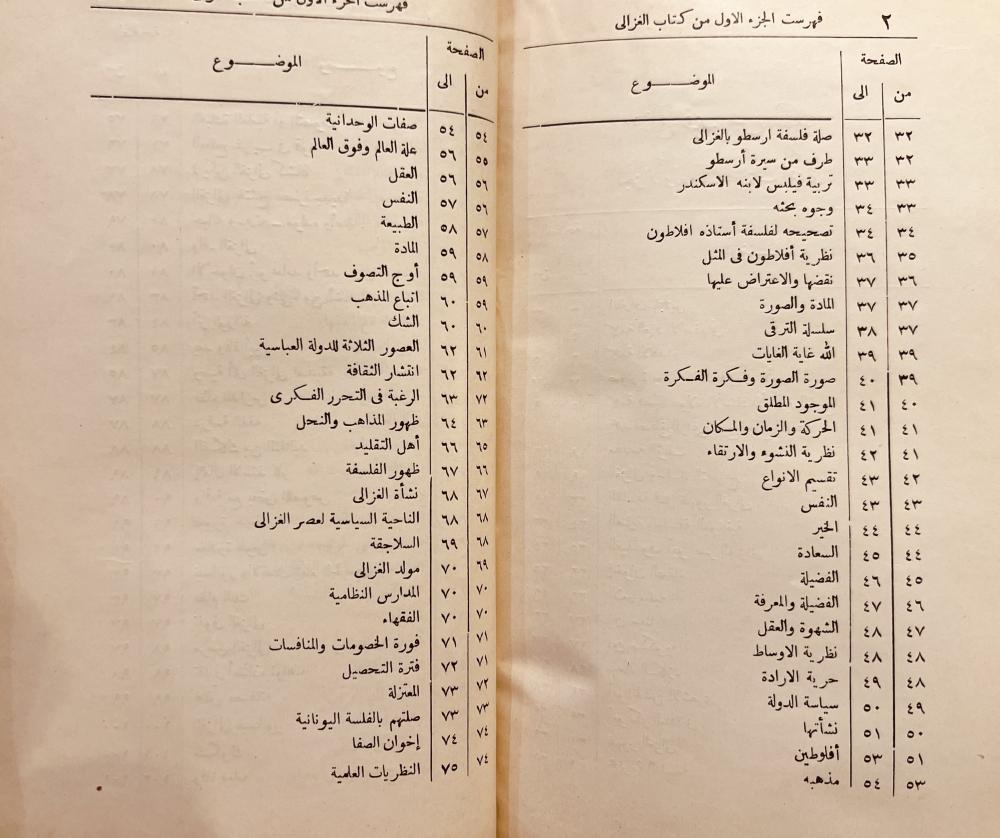 ٢ فهرست الجزء الاول من كتاب الغزالى
الصفحة
من الى الموضــــــوع
٣٢ ٣٢ صلة فلسفة ارسطو بالغزالى
٣٢ ٣٣ طرف من سيرة أرسطو
٣٣ ٣٣ تربية فيلبس لابنه الاسكندر
٣٣ ٣٤ وجوه بحثه
٣٤ ٣٤ تصحيحه لفلسفة أستاذه افلاطون
٣٥ ٣٦ نظرية أفلاطون فى المثل
٣٦ ٣٧ نقضها والاعتراض عليها
٣٧ ٣٧ المادة والصورة
٣٧ ٣٨ سلسلة الترقى
٣٩ ٣٩ الله غاية الغايات
٣٩ ٤٠ صورة الصورة وفكرة الفكرة
٤٠ ٤١ الموجود المطلق
٤١ ٤١ الحركة والزمان والمكان
٤١ ٤٢ نظرية النشوء والارتقاء
٤٢ ٤٣ تقسيم الانواع
٤٣ ٤٣ النفس
٤٤ ٤٤ الخير
٤٤ ٤٥ السعادة
٤٥ ٤٦ الفضيلة
٤٦ ٤٧ الفضيلة والمعرفة
٤٧ ٤٨ الشهوة والعقل
٤٨ ٤٨ نظرية الاوساط
٤٨ ٤٩ حرية الارادة
٤٩ ٥٠ سياسة الدولة
٥٠ ٥١ نشأتها
٥١ ٥٣ أفلوطين
٥٣ ٥٤ مذهبه
فهرست الجزء الاول من
الصفحة
من الى الموضــــــوع
٥٤ ٥٤ صفات الوحدانية
٥٥ ٥٦ علة العالم وفوق العالم
٥٦ ٥٦ العقل
٥٦ ٥٧ النفس
٥٧ ٥٨ الطبيعة
٥٨ ٥٩ المادة
٥٩ ٥٩ أوج التصوف
٥٩ ٦٠ اتباع المذهب
٦٠ ٦٠ الشك
٦١ ٦٢ العصور الثلاثة للدولة العباسية
٦٢ ٦٢ انتشار الثقافة
٧٢ ٦٣ الرغبة فى التحرر الفكرى
٦٣ ٦٤ ظهور المذاهب والنحل
٦٥ ٦٦ أهل التقليد
٦٦ ٦٧ ظهور الفلسفة
٦٧ ٦٨ نشأة الغزالى
٦٨ ٦٨ الناحية السياسية لعصر الغزالى
٦٨ ٦٩ السلاجقة
٦٩ ٧٠ مولد الغزالى
٧٠ ٧٠ المدارس النظامية
٧٠ ٧٠ الفقهاء
٧١ ٧١ فورة الخصومات والمنافسات
٧١ ٧٢ فترة التحصيل
٧٢ ٧٣ المعتزلة
٧٣ ٧٣ صلتهم بالفلسة اليونانية
٧٤ ٧٤ إخوان الصفا
٧٤ ٧٥ النظريات العلمية